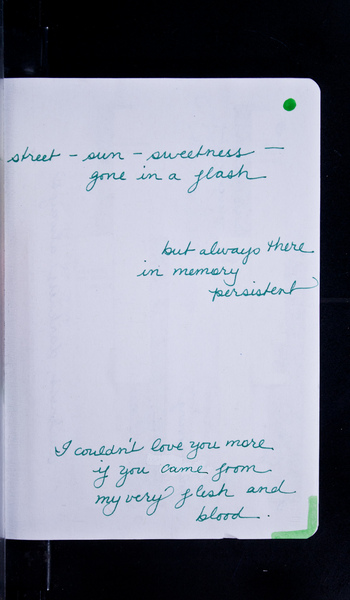 street - sun - sweetness -
gone in a flash
but always there
in memory
persistent
I couldn't love you more
if you came from
my very flesh and
blood.